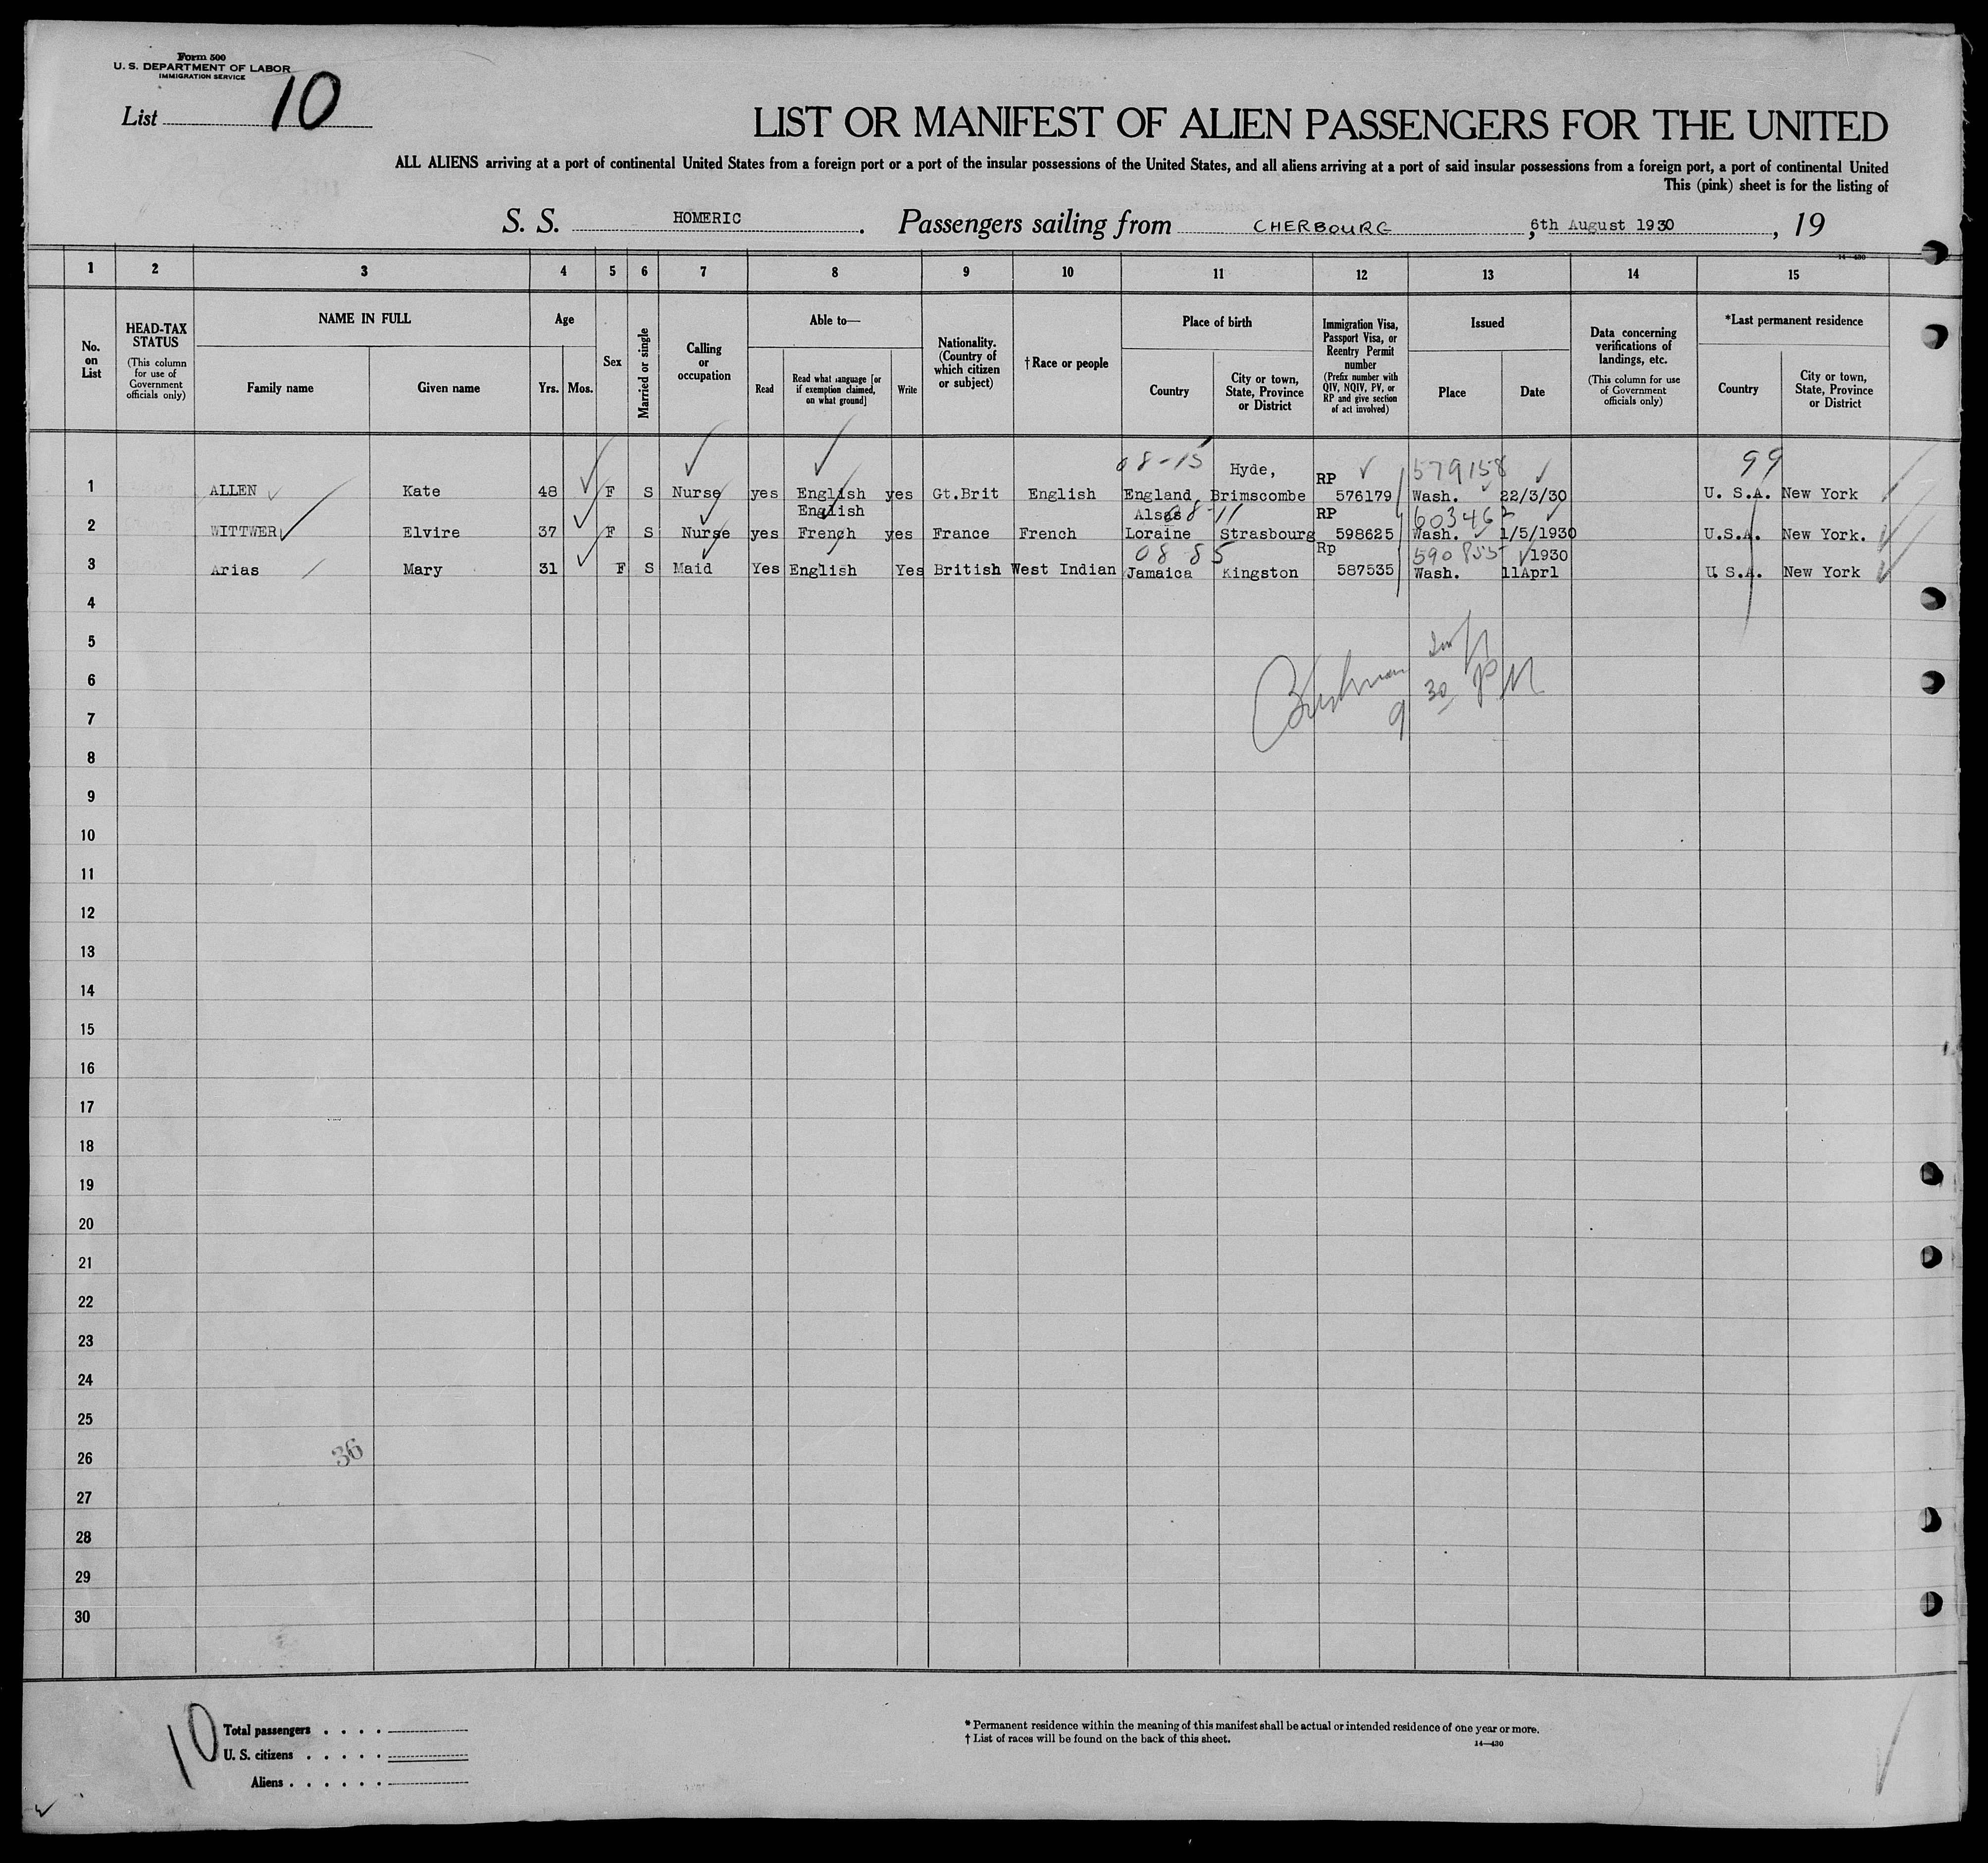 Form 500
U. S. DEPARTMENT OF LABOR
IMMIGRATION SERVICE
List 10
LIST OR MANIFEST OF ALIEN PASSENGERS FOR THE UNITED
ALL ALIENS arriving at a port of continental United States from a foreign port or a port of the insular possessions of the United States, and all aliens arriving at a port of said insular possessions from a foreign port, a port of continental United
This (pink) sheet is for the listing of
S. S. HOMERIC. Passengers sailing from CHERBOURG, 6th August 1930, 19
14—430
1 2 3 4 5 6 7 8 9 10 11 12 13 14 15
No. on List
HEAD-TAX STATUS
(This column for use of Government officials only)
NAME IN FULL
Family name
Given name
Age
Yrs.
Mos.
Sex
Married or single
Calling or occupation
Able to—
Read
Read what language [or if exemption claimed, on what ground]
Write
Nationality. (Country of which citizen or subject)
† Race or people
Place of birth
Country
City or town, State, Province or District
Immigration Visa, Passport Visa, or Reentry Permit number
(Prefix number with QIV, NQIV, PV, or RP and give section of act involved)
Issued
Place
Date
Data concerning verifications of landings, etc.
(This column for use of Government officials only)
*Last permanent residence
Country
City or town, State, Province or District
08-15 Hyde, RP 579158 99
1 ALLEN Kate 48 F S Nurse yes English yes Gt.Brit English England, Brimscombe 576179 Wash. 22/3/30 U. S.A. New York
English Alsas 08-11 RP 603462
2 WITTWER Elvire 37 F S Nurse yes French yes France French Loraine Strasbourg 598625 Wash. 1/5/1930 U.S.A. New York.
08 85 Rp 590855 1930
3 Arias Mary 31 F S Maid Yes English Yes British West Indian Jamaica Kingston 587535 Wash. 11Aprl U.S.A. New York
4
5
6
9 30 PM
7
8
9
10
11
12
13
14
15
16
17
18
19
20
21
22
23
24
25
26
36
27
28
29
30
10
Total passengers . . . .
U. S. citizens . . . . .
Aliens . . . . . .
* Permanent residence within the meaning of this manifest shall be actual or intended residence of one year or more.
† List of races will be found on the back of this sheet.
14—430